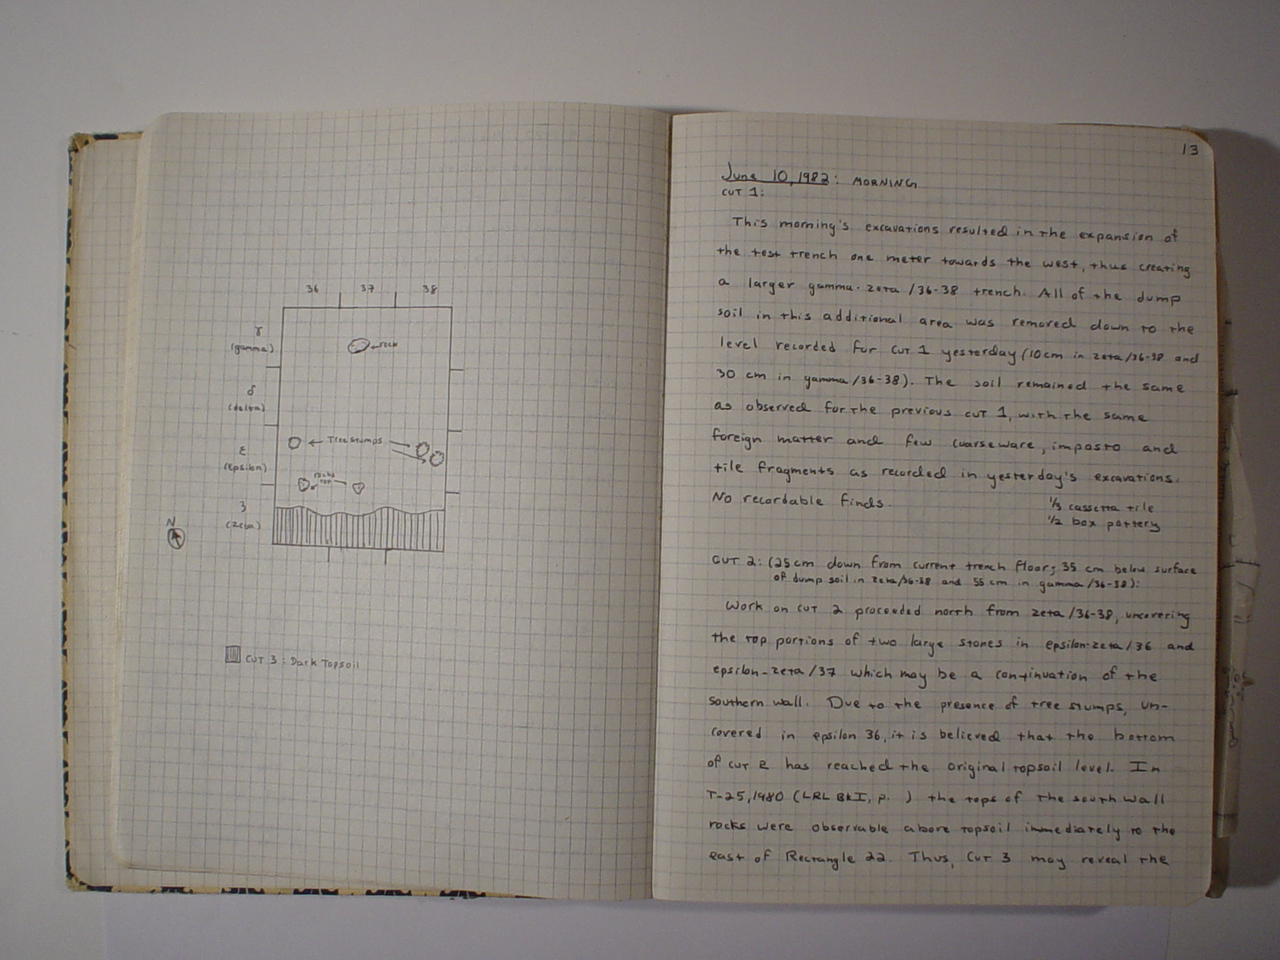 36 37 38
γ
(gamma)
← rock
δ
(delta)
← Tree stumps
ε
(epsilon)
rocks
ζ
(zeta)
N
CUT 3: Dark Topsoil
13
June 10, 1982: MORNING
CUT 1:
This morning's excavations resulted in the expansion of
the test trench one meter towards the west, thus creating
a larger gamma-zeta/36-38 trench. All of the dump
soil in this additional area was removed down to the
level recorded for CUT 1 yesterday (10cm in zeta/36-38 and
30 cm in gamma/36-38). The soil remained the same
as observed for the previous cut 1, with the same
foreign matter and few coarseware, impasto and
tile fragments as recorded in yesterday's excavations.
No recordable finds.
1/3 cassetta tile
1/2 box pottery
CUT 2: (25cm down from current trench floor; 35 cm below surface
of dump soil in zeta/36-38 and 55 cm in gamma/36-38):
Work on cut 2 proceeded north from zeta/36-38, uncovering
the top portions of two large stones in epsilon-zeta/36 and
epsilon-zeta/37 which may be a continuation of the
southern wall. Due to the presence of tree stumps, un-
covered in epsilon 36, it is believed that the bottom
of cut 2 has reached the original topsoil level. In
T-25, 1980 (LRL BkI, p. ) the tops of the south wall
rocks were observable above topsoil immediately to the
east of Rectangle 22. Thus, CUT 3 may reveal the